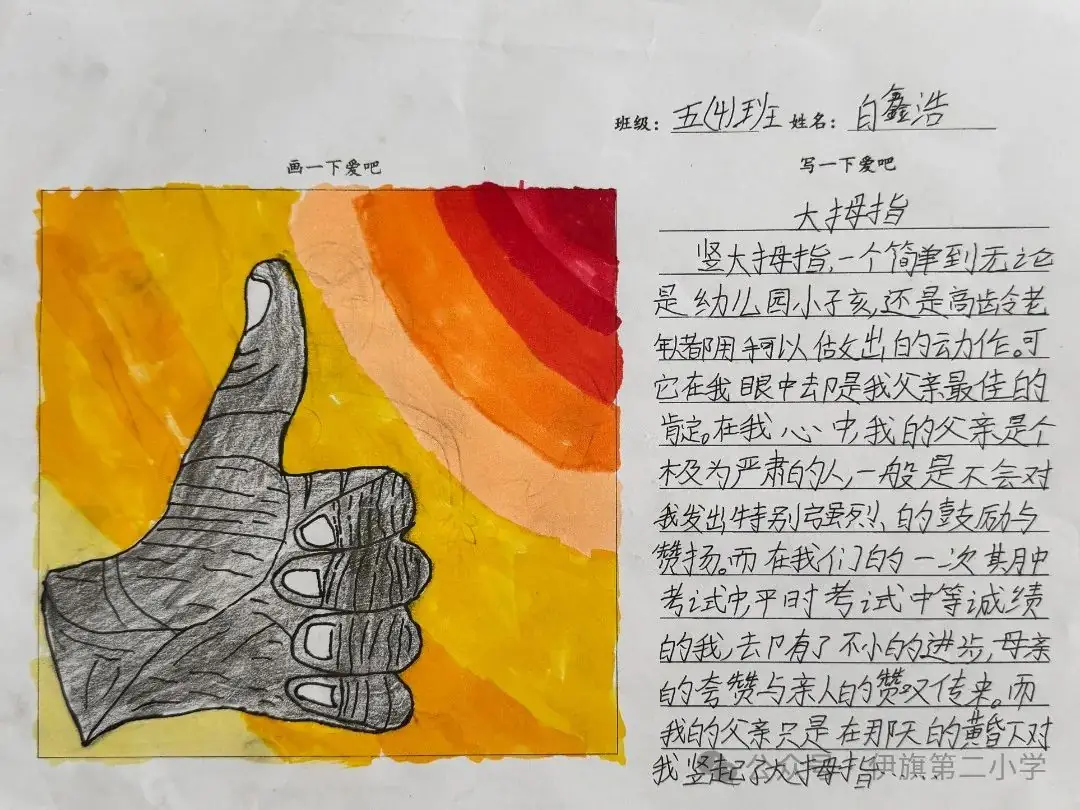 班级：五(4)班 姓名：白鑫浩
画一下爱吧
写一下爱吧
大拇指
竖大拇指，一个简单到无论
是幼儿园小子亥，还是高龄老
年都用手可以做出的动作。可
它在我眼中却是我父亲最佳的
肯定。在我心中，我的父亲是个
极为严肃的人，一般是不会对
我发出特别强烈、的鼓励与
赞扬。而在我们的一次期中
考试中，平时考试中等诚绩
的我，却有了不小的进步，母亲
的夸赞与亲人的赞又传来。而
我的父亲只是在那天的黄昏下对
我竖起了大拇指······
公众号 伊旗第二小学